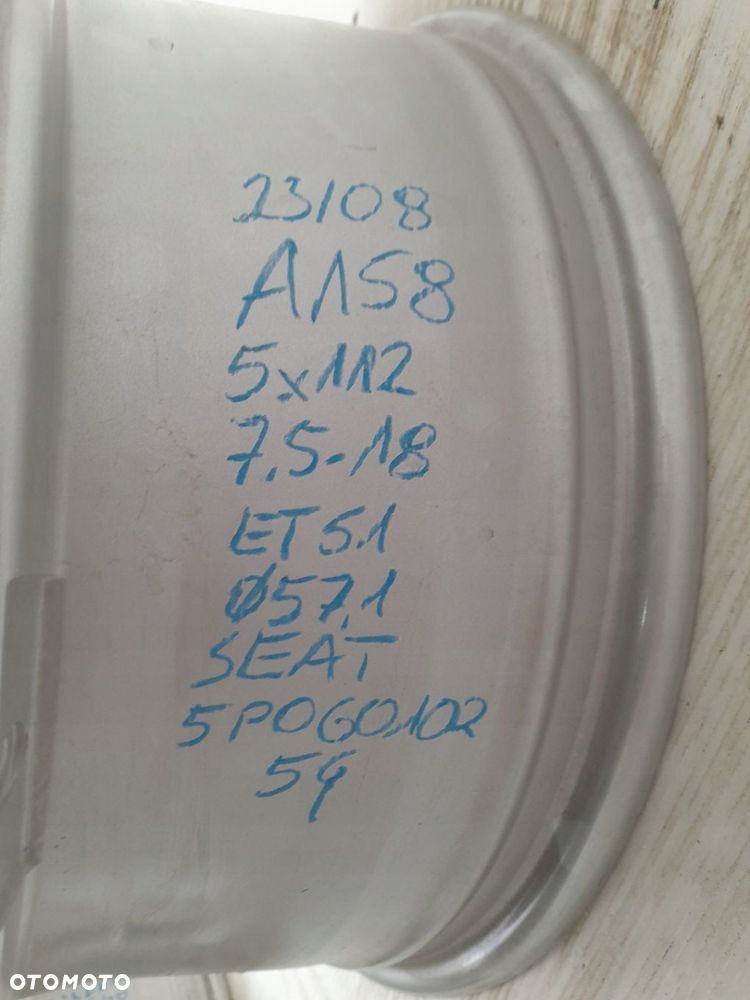 23108
A158
5x112
7.5-18
ET51
Ø57,1
SEAT
5P0601025
OTOMOTO